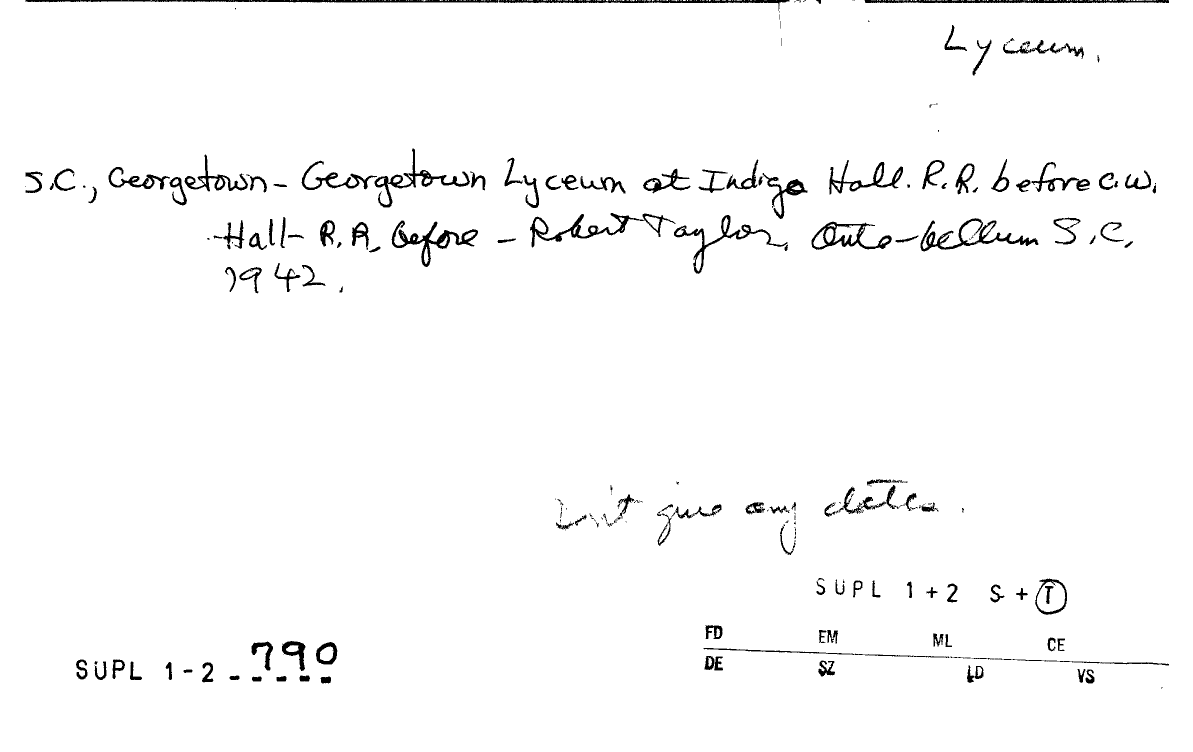 Lyceum.
S.C., Georgetown - Georgetown Lyceum at Indigo Hall. R.R. before C.W.
Hall - R.R. before - Robert Taylor. Ante-bellum S.C.
1942.
give any dates.
SUPL 1+2 S + T
FD EM ML CE
DE SZ LD VS
SUPL 1-2 - 790